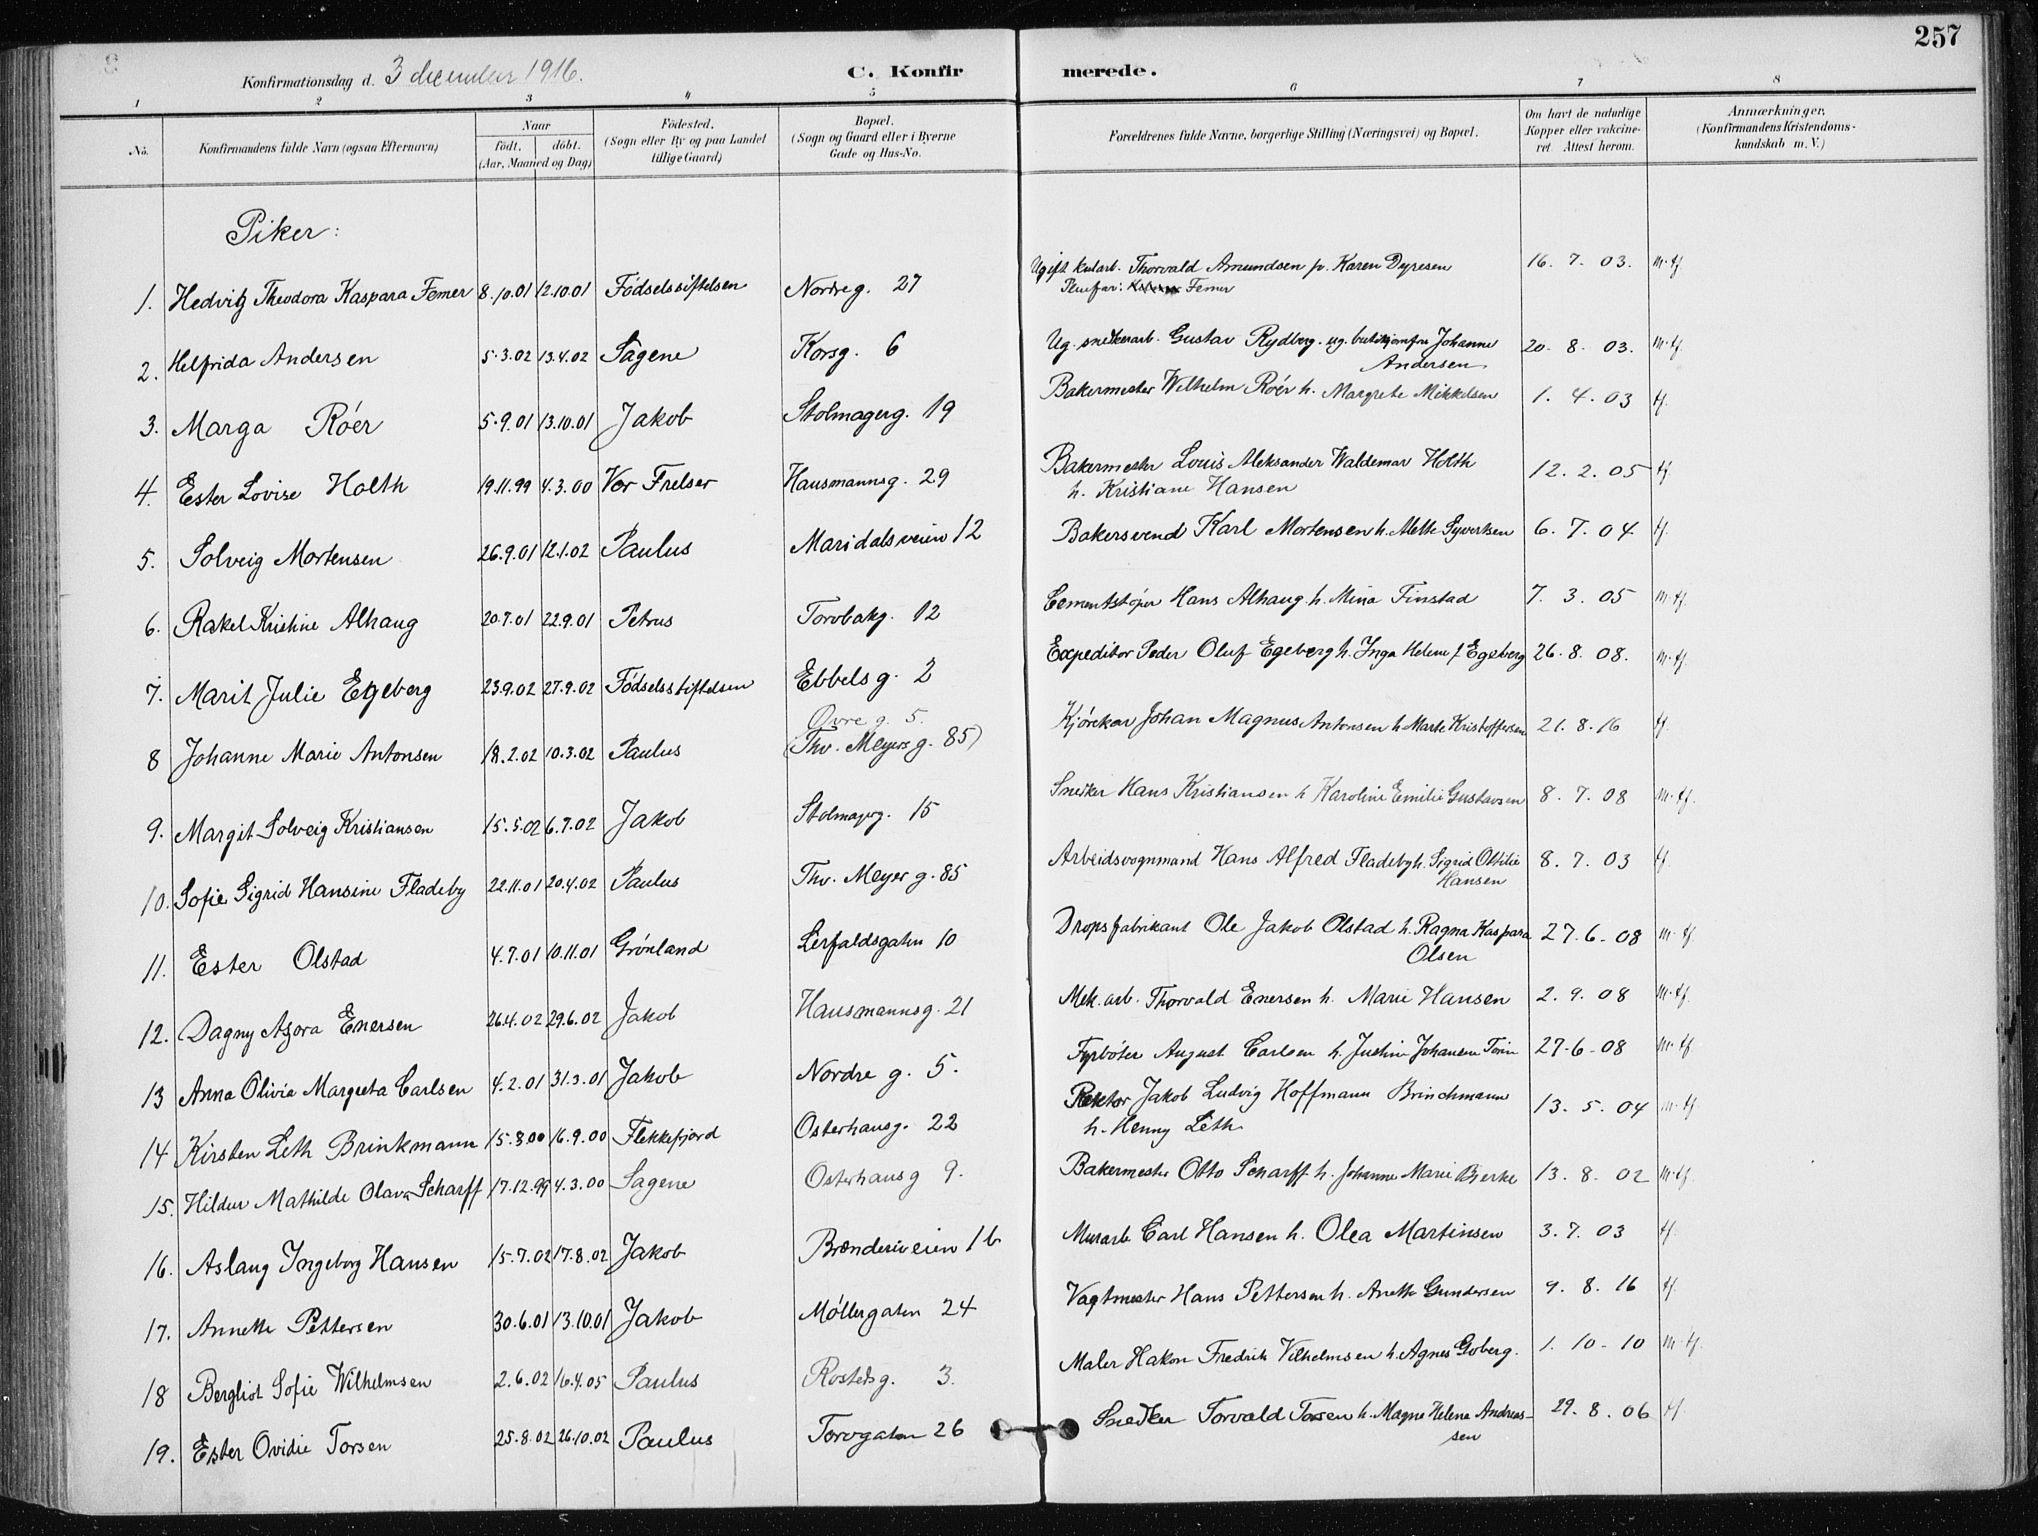 257
Konfirmationsdag d. 3 december 1916.
C. Konfirmerede.
1 2 3 4 5 6 7 8
No. Konfirmandens fulde Navn (ogsaa Efternavn) Naar født. døbt. (Aar, Maaned og Dag) Fødested. (Sogn eller By og paa Landet tillige Gaard) Bopæl. (Sogn og Gaard eller i Byerne Gade og Hus-No. Forældrenes fulde Navne, borgerlige Stilling (Næringsvei) og Bopæl. Om havt de naturlige Kopper eller vakcineret. Attest herom. Anmærkninger. (Konfirmandens Kristendomskundskab m. V.)
Piker:
1. Hedvig Theodora Kaspara Femer 8.10.01 12.10.01 Fødselsstiftelsen Nordreg. 27 Ugift kularb. Thorvald Amundsen p. Karen Dyresen 16. 7. 03. m.tf.
Pleiefar: Femer
2. Helfrida Andersen 5.3.02 13.4.02 Sagene Korsg. 6 Ug. snedkerarb. Gustav Rydberg. ug. butikjomfru Johanne 20. 8. 03. m.tf.
Andersen
3. Marga Róer 5.9.01 13.10.01 Jakob Stolmagerg. 19 Bakermester Wilhelm Róer h. Margrete Mikkelsen 1. 4. 03 tf.
4. Ester Lovise Holth 19.11.99 4.3.00 Vor Frelser Hausmannsg. 29 Bakermester Louis Aleksander Waldemar Holth 12. 2. 05 tf.
h. Kristiane Hansen
5. Solveig Mortensen 26.9.01 12.1.02 Paulus Maridalsveien 12 Bakersvend Karl Mortensen h. Mette Syvertsen 6. 7. 04. tf.
6. Rakel Kristine Alhaug 20.7.01 22.9.01 Petrus Torvbakg. 12 Cementstøper Hans Alhaug h. Mina Finstad 7. 3. 05 m.tf.
7. Marit Julie Egeberg 23.9.02 27.9.02 Fødselsstiftelsen Ebbelsg. 2 Expeditør Peder Oluf Egeberg h. Inga Helene f. Egeberg 26. 8. 08. m.tf.
Øvre g. 5.
8 Johanne Marie Antonsen 18.2.02 10.3.02 Paulus (Thv. Meyers g. 85) Kjørekar Johan Magnus Antonsen h. Marte Kristoffersen 21. 8. 16 tf.
9. Margit Solveig Kristiansen 15.5.02 6.7.02 Jakob Stolmagerg. 15 Snedker Hans Kristiansen h Karoline Emilie Gustavsen 8. 7. 08 m.tf.
10. Sofie Sigrid Hansine Fladeby 22.11.01 20.4.02 Paulus Thv. Meyer g. 85 Arbeidsvognmand Hans Alfred Fladeby h. Sigrid Ottilie 8. 7. 03 tf.
Hansen
11. Ester Olstad 4.7.01 10.11.01 Grønland Lerfaldsgaten 10 Dropsfabrikant Ole Jakob Olstad h. Ragna Kaspara 27. 6. 08 m.tf.
Olsen
12. Dagny Azora Enersen 26.4.02 29.6.02 Jakob Hausmannsg. 21 Mek. arb. Thorvald Enersen h. Marie Hansen 2. 9. 08 m.tf.
13 Anna Olivia Margreta Carlsen 4.2.01 31.3.01 Jakob Nordre g. 5. Fyrbøter August Carlsen h. Justine Johansen 27. 6. 08 m.tf.
14 Kirsten Leth Brinkmann 15.8.00 16.9.00 Flekkefjord Osterhausg. 22 Rektor Jakob Ludvig Hoffmann Brinchmann 13. 5. 04 m.tf.
h. Henny Leth
15. Hildur Mathilde Olava Scharff 17.12.99 4.3.00 Sagene Osterhausg 9. Bakermester Otto Scharff h. Johanne Marie Bjerke 13. 8. 02 m.tf.
16. Aslaug Ingeborg Hansen 15.7.02 17.8.02 Jakob Brenderiveien 1b Murarb Carl Hansen h. Olea Martinsen 3. 7. 03 tf.
17. Annette Pettersen 30.6.01 13.10.01 Jakob Møllergaten 24 Vagtmester Hans Pettersen h. Anette Gundersen 9. 8. 16 tf.
18 Bergliot Sofie Wilhelmsen 2.6.02 16.4.05 Paulus Rostedsg. 3. Maler Hakon Fredrik Vilhelmsen h. Agnes Goberg. 1. 10. 10 m.tf.
19. Ester Ovidie Torsen 25.8.02 26.10.02 Paulus Torvgaten 26 Snedker Torvald Torsen h. Magna Helene Andreas- 29. 8. 06 tf.
sen